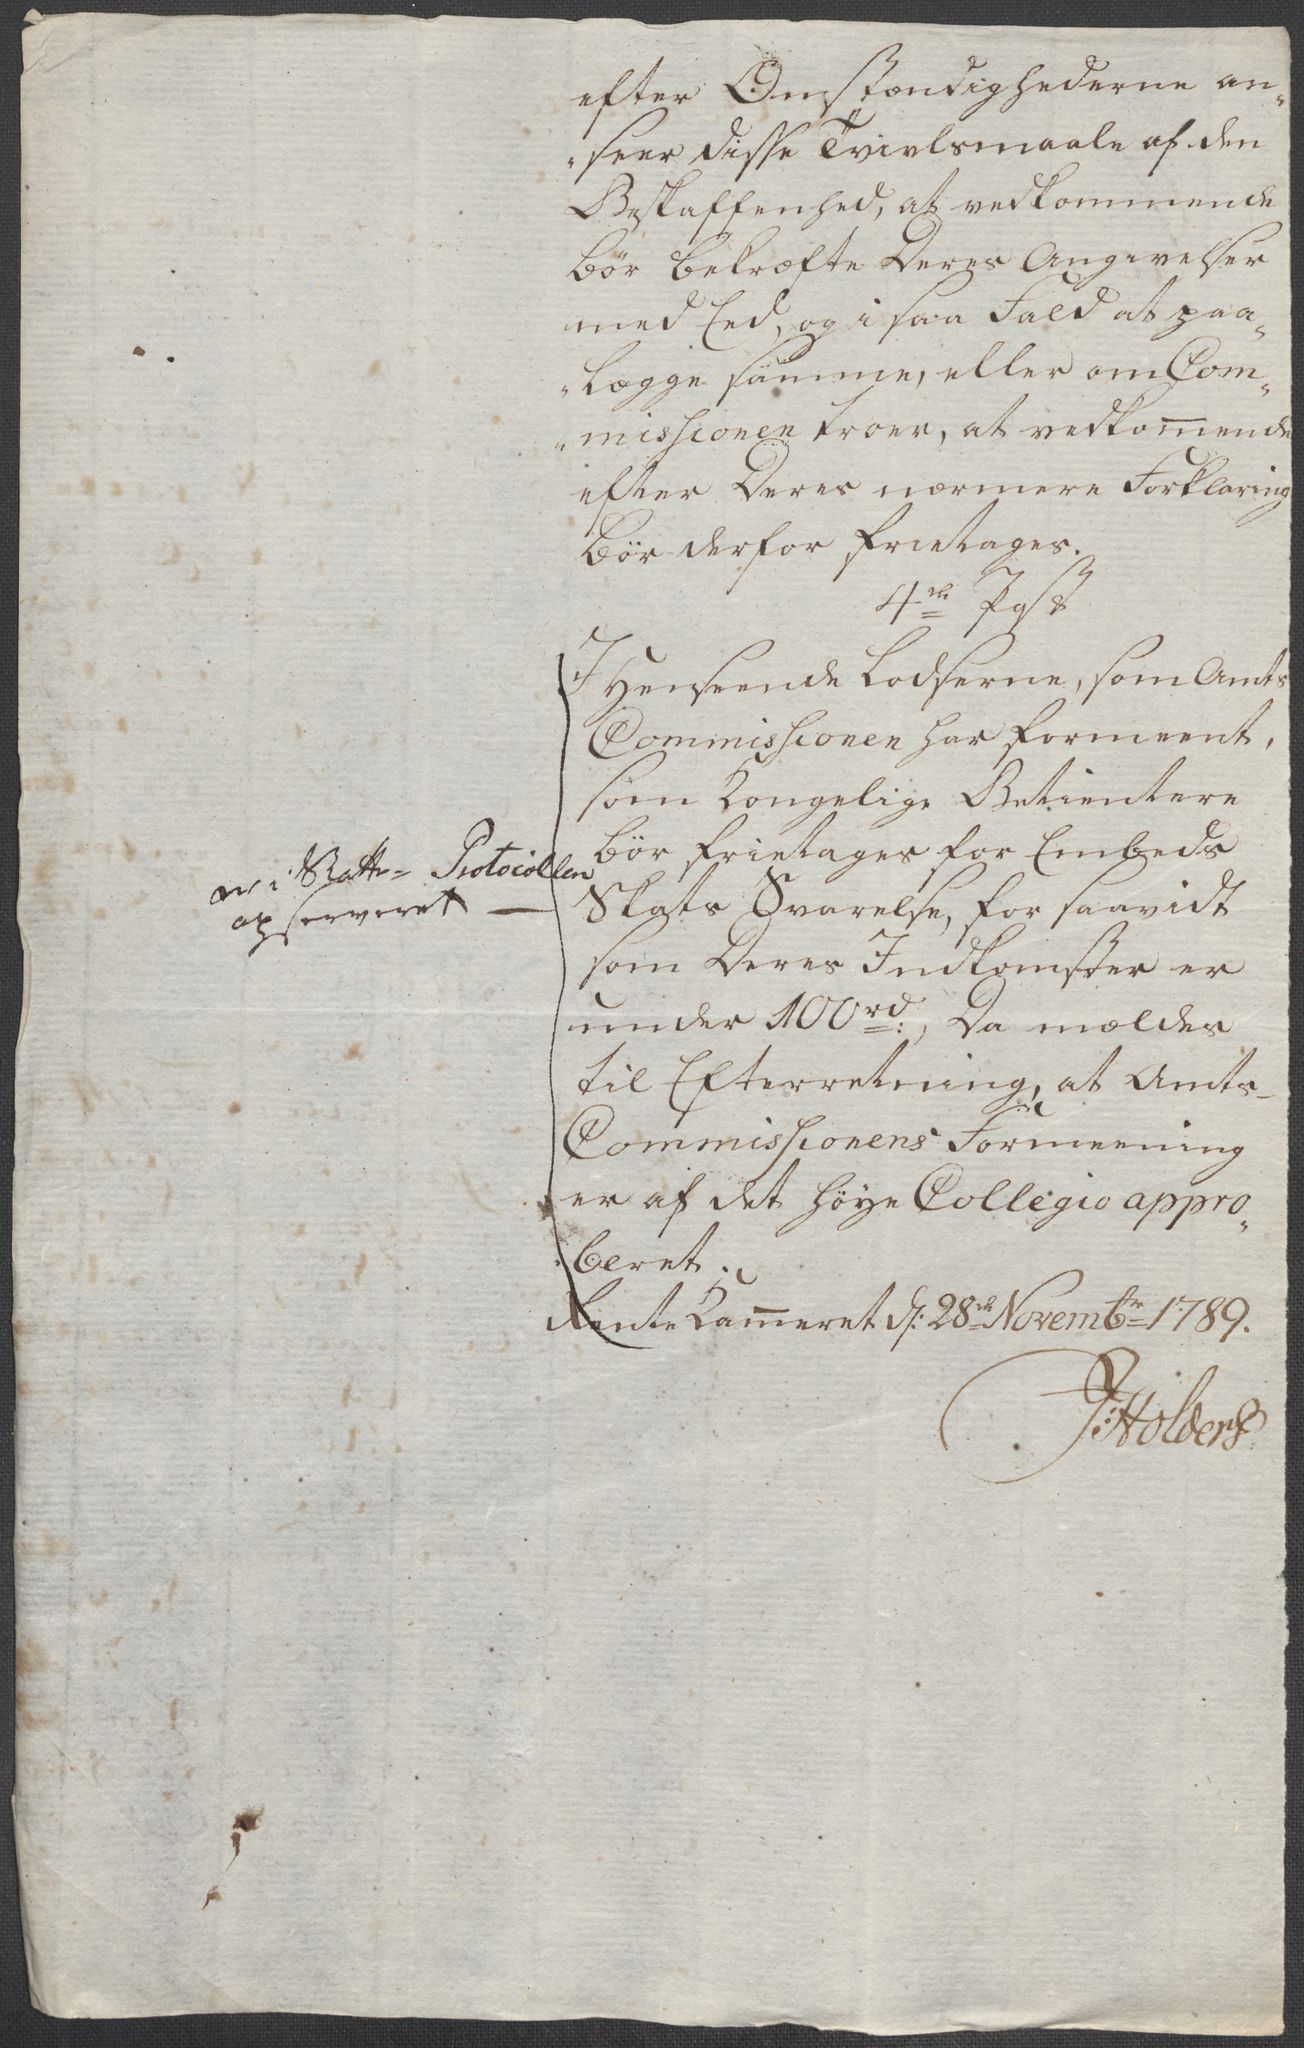 efter Omstændighederne an-
-seer disse Tvivlsmaale af den
Beskaffenhed, at vedkommende
bör bekræfte Deres Angivelser
med Eed, og i saa Fald at paa-
-lægge samme, eller om Com-
-missionen troer, at vedkom̅ende
efter Deres nærmere Forklaring
bör derfor frietages.
4de Post
I Henseende Lodserne, som Amts
Commissionen har formeent,
som Kongelige Betientere
bör frietages for Embeds
Skats Svarelse, for saavidt
som Deres Indkomster er
under 100rd:, Da meldes
til Efterretning, at Amts-
Commissionens Formeening
er af det höye Collegio appro-
-beret.
er i Protocollen
opserveret —
Rente Kam̅eret d: 28de Novembr 1789.
J: Holders